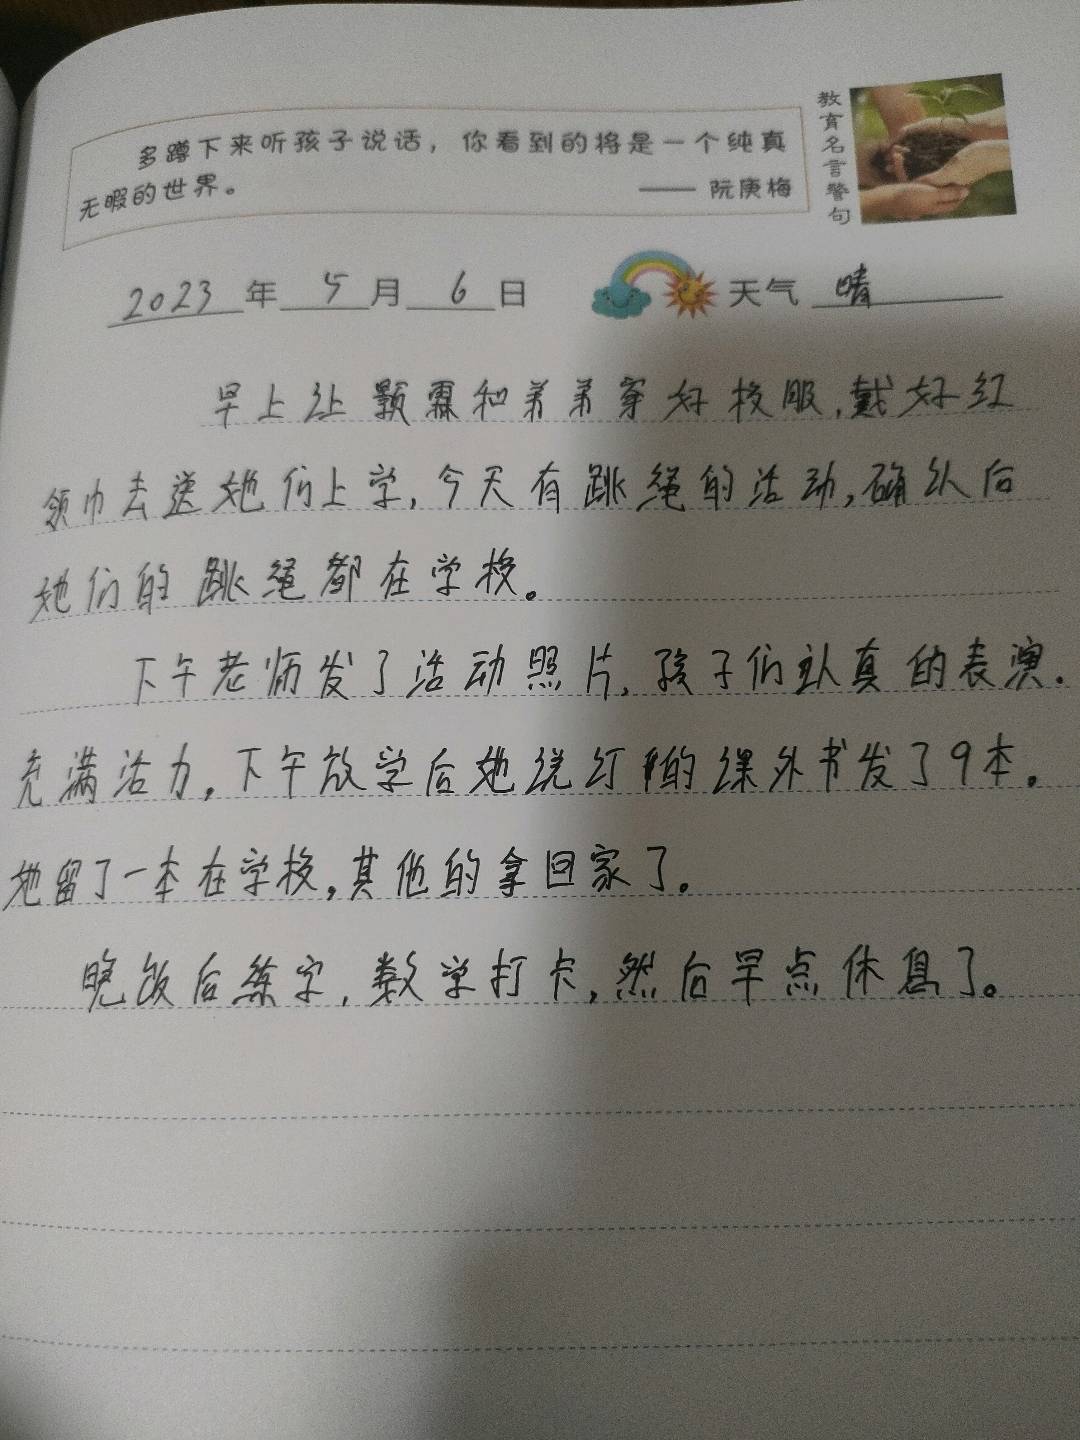 多蹲下来听孩子说话，你看到的将是一个纯真
无暇的世界。 —— 阮庚梅
教育名言警句
2023年5月6日 天气 晴
早上让颢霖和弟弟穿好校服,戴好红
领巾去送她们上学,今天有跳绳的活动,确认后
她们的跳绳都在学校。
下午老师发了活动照片,孩子们认真的表演.
充满活力。下午放学后她说订的课外书发了9本。
她留了一本在学校,其他的拿回家了。
晚饭后练字,数学打卡,然后早点休息了。